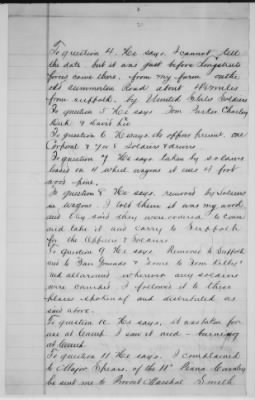 To question 4. He says. I cannot tell
the date. but it was just before Longstreets
forces came there. from my farm on the
old Summerton Road about 4½ miles
from Suffolk. by United States Soldiers
To question 5 He says Tom Parker Charley
& David Lee
To question 6 He says. No officer present. one
Corporal & 7 or 8 Soldiers & drivers.
To question 7 He says taken by soldiers
loaded on 4 wheel wagons it was 4 foot
wood - pine.
To question 8 He says. removed by Soldiers
in wagons. I told them it was my wood.
and they said they were ordered to come
and take it and carry to Suffolk
for the Officers & Soldiers
To question 9 He says Removed to Suffolk
and to Fair Grounds & Some to Tom
and all around where any soldiers
were camped. I followed it to these
places and distributed as
said above.
To question 10. He says. it was taken for
use at Camp. I saw it used - burning
at Camp
To question 11 He says. I complained
to Major Spears. of the 11" Penna Cavalry
he sent me to Provost Marshal Smith